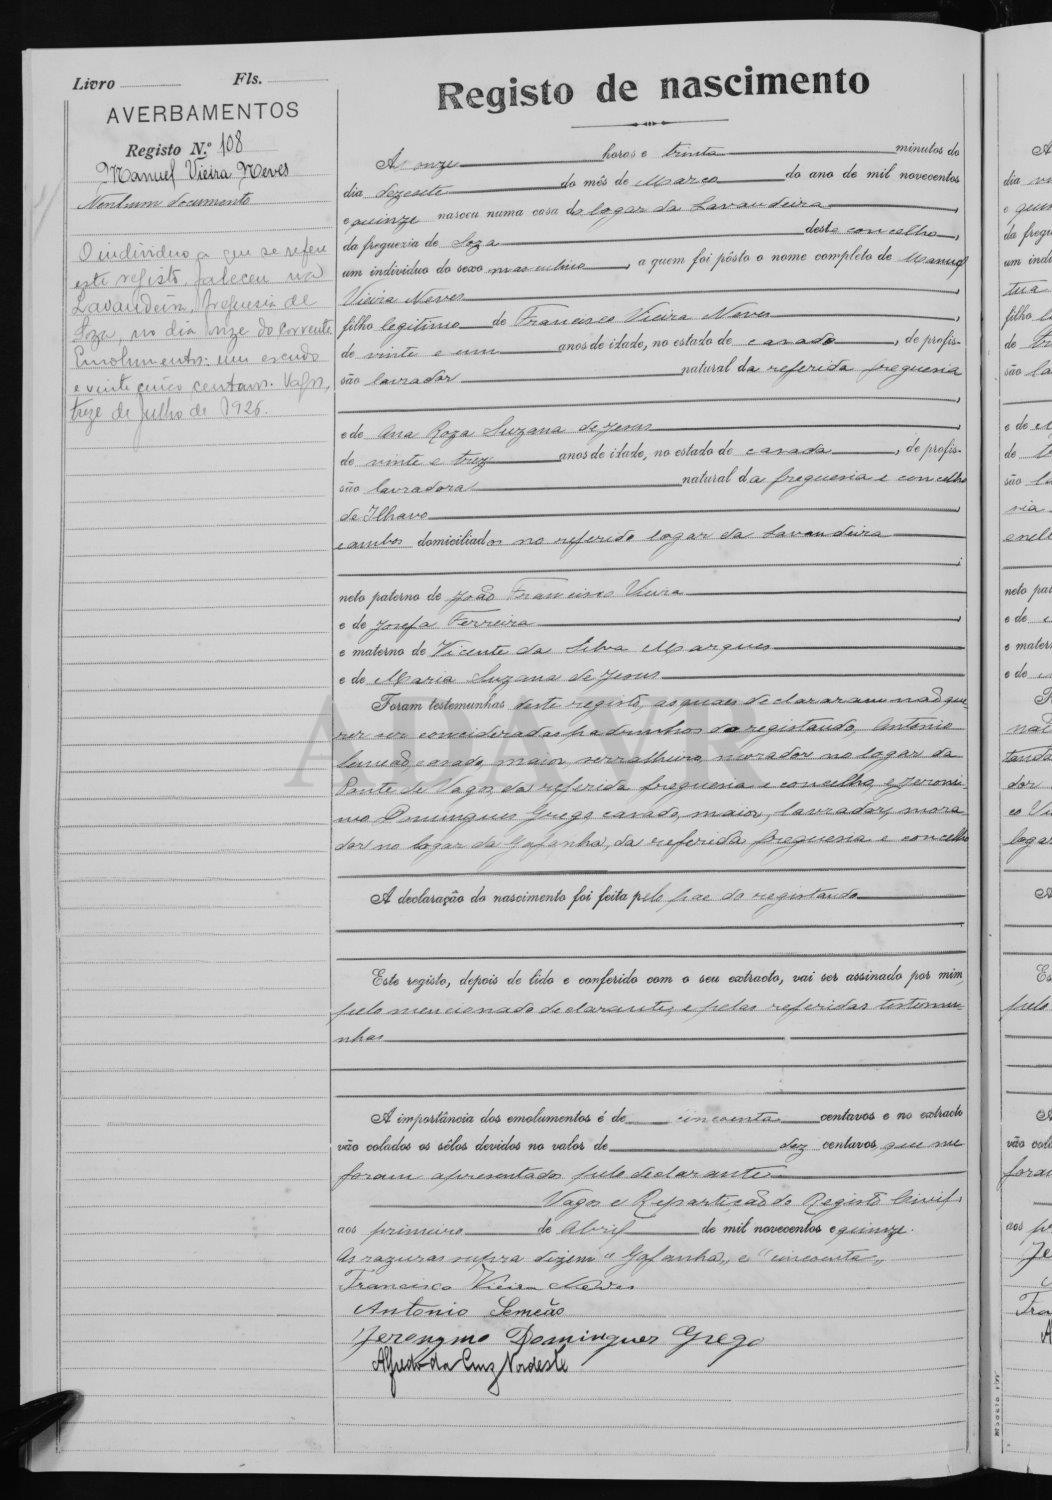 Livro Fls.
AVERBAMENTOS
Registo N.º 108
Manuel Vieira Neves
Nenhum documento
O individuo a que se refere
este registo, faleceu na
Lavandeira, freguesia de
Soza, no dia onze do corrente
Emolumentos: um escudo
e vinte cinco centavos. Vagos,
treze de Julho de 1926.
Registo de nascimento
Ás onze horas e trinta minutos do
dia dezesete do mês de Março do ano de mil novecentos
e quinze nasceu numa casa do logar da Lavandeira,
da freguezia de Soza deste concelho,
um individuo do sexo masculino, a quem foi pôsto o nome completo de Manuel
Vieira Neves,
filho legitimo de Francisco Vieira Neves,
de vinte e um anos de idade, no estado de casado, de profis-
são lavrador natural da referida freguesia
,
e de Ana Roza Suzana de Jesus,
de vinte e trez anos de idade, no estado de casada, de profis-
são lavradora natural da freguesia e concelho
de Ilhavo,
e ambos domiciliados no referido logar da Lavandeira
;
neto paterno de João Francisco Vieira
e de Josefa Ferreira,
e materno de Vicente da Silva Marques
e de Maria Suzana de Jesus.
Foram testemunhas deste registo, as quaes declararam não que-
rer ser consideradas padrinhos do registando, Antonio
Simeão, casado, maior, serralheiro, morador no logar da
Ponte de Vagos, da referida freguesia e concelho, e Jeroni-
mo Domingues Grego casado, maior, lavrador, mora
dor no logar da Gafanha, da referida freguesia e concelho
A declaração do nascimento foi feita pelo pae do registando
Este registo, depois de lido e conferido com o seu extracto, vai ser assinado por mim,
pelo mencionado declarante, e pelas referidas testemu-
nhas
A importância dos emolumentos é de cincoenta centavos e no extracto
vão colados os sêlos devidos no valor de dez centavos, que me
foram apresentados pelo declarante
Vagos e Repartição do Registo Civil,
aos primeiro de Abril de mil novecentos e quinze.
As razuras supra dizem "Gafanha", e "cincoenta",
Francisco Vieira Neves
Antonio Semeão
Jeronymo Domingues Grego
Alfredo da Cruz Nordeste
ADAVR